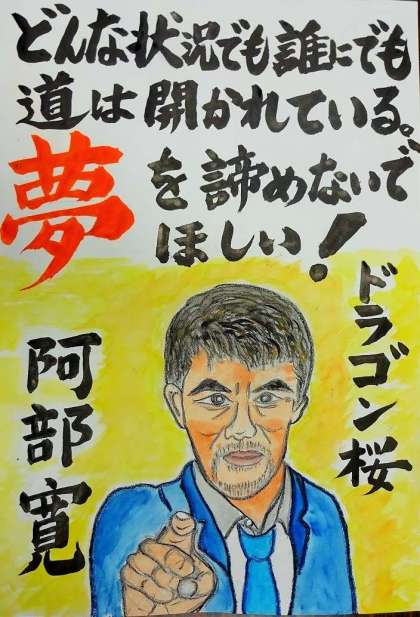 どんな状況でも誰にでも
道は開かれている。
夢を諦めないで
ほしい!
ドラゴン桜
阿部寛